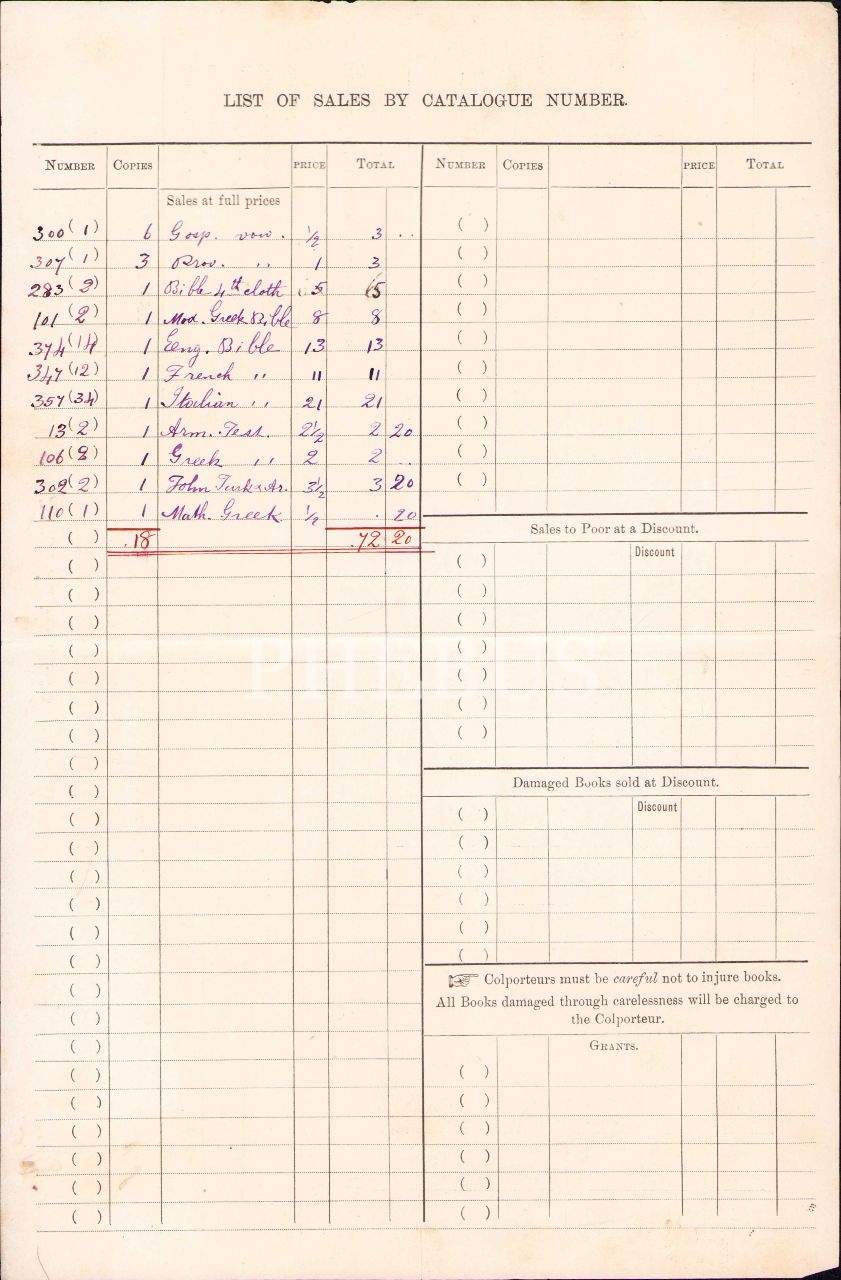 LIST OF SALES BY CATALOGUE NUMBER.
NUMBER COPIES PRICE TOTAL NUMBER COPIES PRICE TOTAL
Sales at full prices
300 (1) 6 Gosp. vow. 1/2 3 ..
307 (1) 3 Prov. ,, 1 3
283 (3) 1 Bible 4th cloth 5 5
101 (2) 1 Mod. Greek Bible 8 8
374 (14) 1 Eng. Bible 13 13
347 (12) 1 French ,, 11 11
357 (34) 1 Italian ,, 21 21
13 (2) 1 Arm. Test. 2 1/2 2 20
106 (8) 1 Greek ,, 2 2 ..
302 (2) 1 John Turk & Ar. 3 1/2 3 20
110 (1) 1 Math. Greek 1/2 . 20
.18 .72 20
Sales to Poor at a Discount.
Discount
PHEBUS
Damaged Books sold at Discount.
Discount
Colporteurs must be careful not to injure books.
All Books damaged through carelessness will be charged to
the Colporteur.
GRANTS.